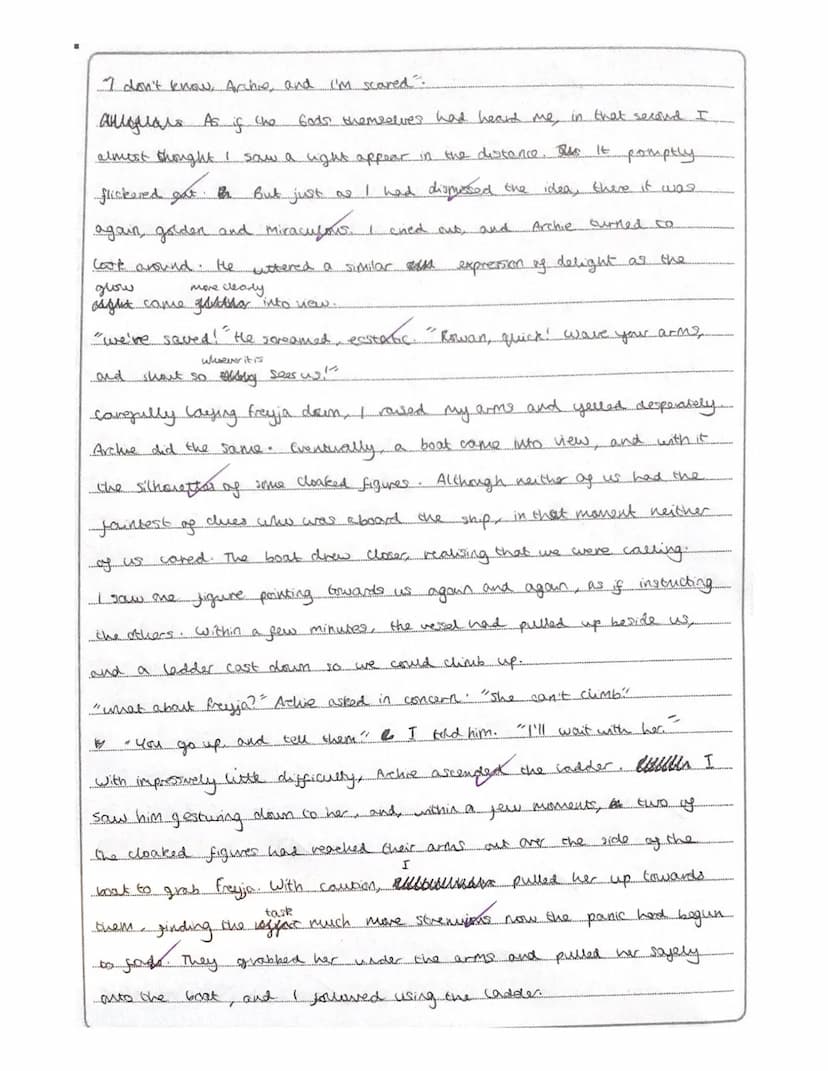 "I don't know, Archie, and I'm scared".
As if the Gods themselves had heard me, in that second I
almost thought I saw a light appear in the distance. It pomptly
flickered out. But just as I had dismissed the idea, there it was
again, golden and miraculous. I cried out, and Archie turned to
look around. He uttered a similar expression of delight as the
glow more clearly
came into view.
"we're saved!" He screamed, ecstatic. "Rowan, quick! Wave your arms,
whoever it is
and shout so sees us!"
Carefully laying Freyja down, I raised my arms and yelled desperately.
Archie did the same. Eventually, a boat came into view, and with it
the silhouettes of some cloaked figures. Although neither of us had the
faintest of clues who was aboard the ship, in that moment neither
of us cared. The boat drew closer, realising that we were calling.
I saw one figure pointing towards us again and again, as if instructing
the others. Within a few minutes, the vessel had pulled up beside us,
and a ladder cast down so we could climb up.
"What about Freyja?" Archie asked in concern. "She can't climb."
"You go up, and tell them." I told him. "I'll wait with her."
With impressively little difficulty, Archie ascended the ladder. I
saw him gesturing down to her, and, within a few moments, two of
the cloaked figures had reached their arms out over the side of the
I
boat to grab Freyja. With caution, pulled her up towards
task
them, finding the much more now the panic had begun
to fade. They grabbed her under the arms and pulled her safely
onto the boat, and I followed using the ladder.